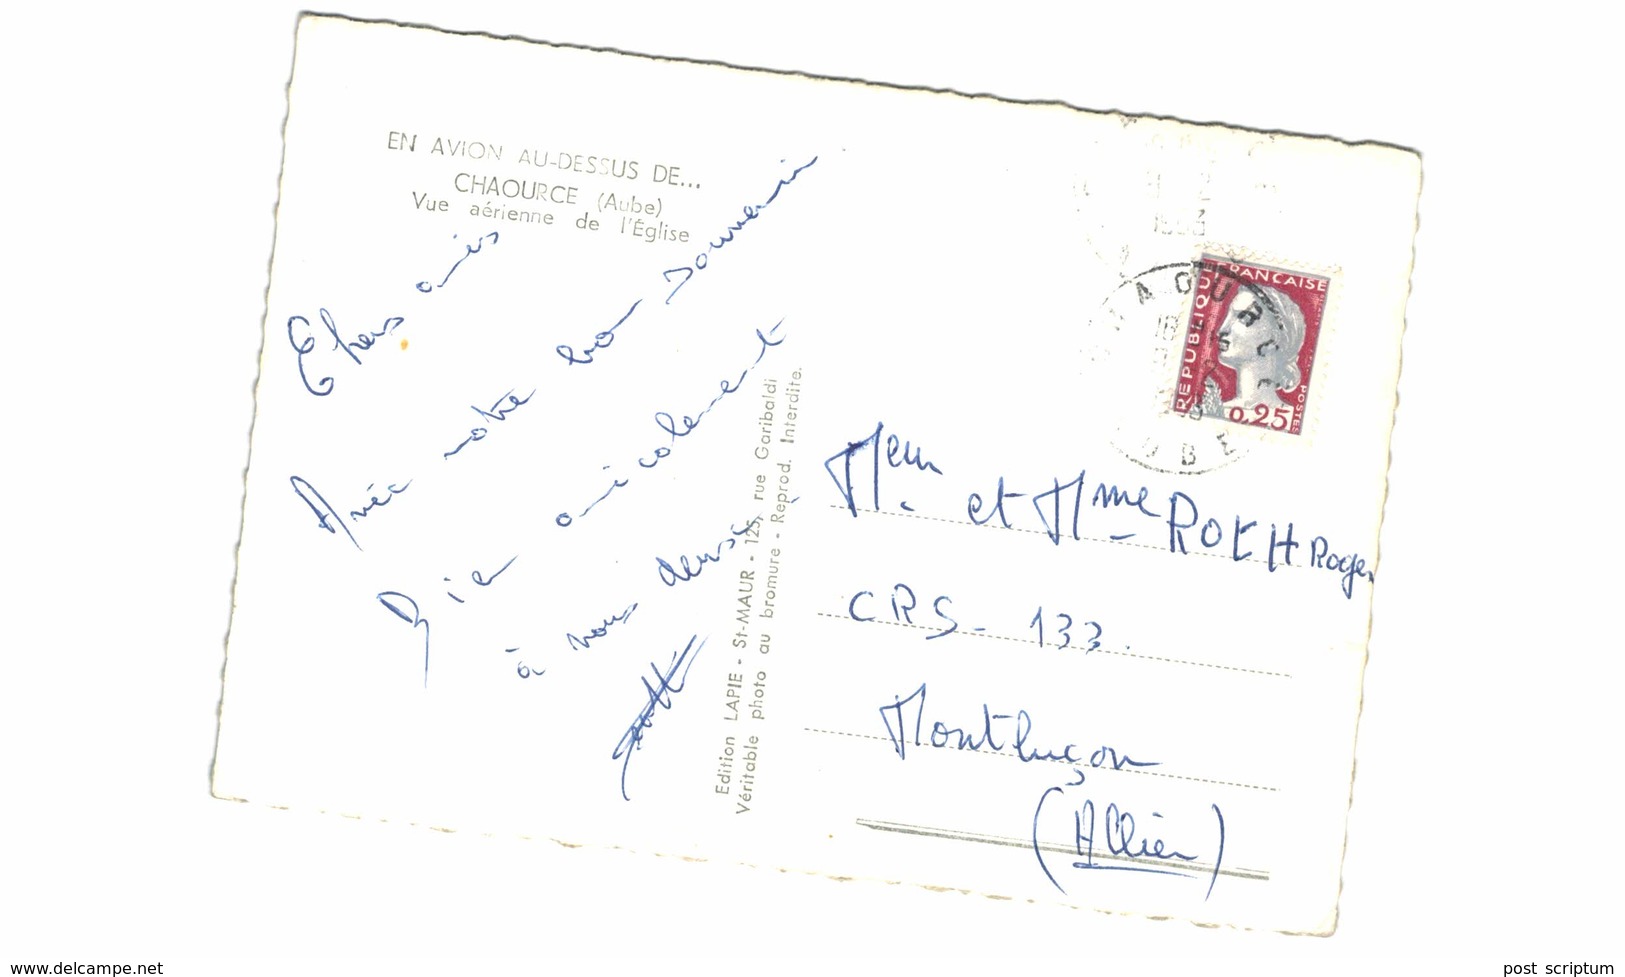 EN AVION AU-DESSUS DE...
CHAOURCE (Aube)
Vue aérienne de l'Église
Chers amis
Avec notre bon souvenir
Bien amicalement
à vous deux.
Edition LAPIE - St-MAUR - 125, rue Garibaldi
Véritable photo au bromure - Reprod. Interdite.
1963
CHAOURCE
AUBE
RÉPUBLIQUE FRANÇAISE
POSTES
0,25
Meur et Mme ROTH Roger
CRS - 133.
Montluçon
(Allier)
www.delcampe.net
post scriptum